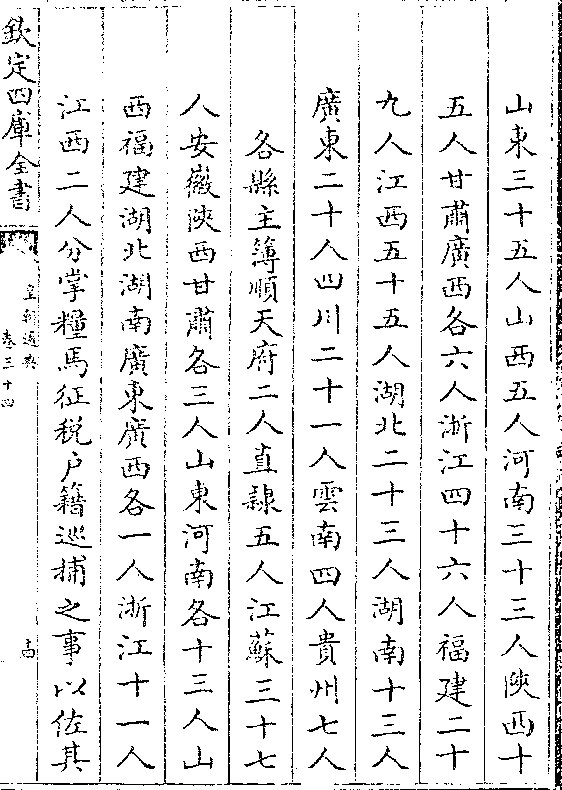 山東三十五人山西五人河南三十三人陜西十
五人甘肅廣西各六人浙江四十六人福建二十
九人江西五十五人湖北二十三人湖南十三人
廣東二十人四川二十一人雲南四人貴州七人
各縣主簿順天府二人直隸五人江蘇三十七
人安徽陜西甘肅各三人山東河南各十三人山
西福建湖北湖南廣東廣西各一人浙江十一人
江西二人分掌糧馬征税户籍巡捕之事以佐其
欽定四庫全書
皇朝通典
卷三十四